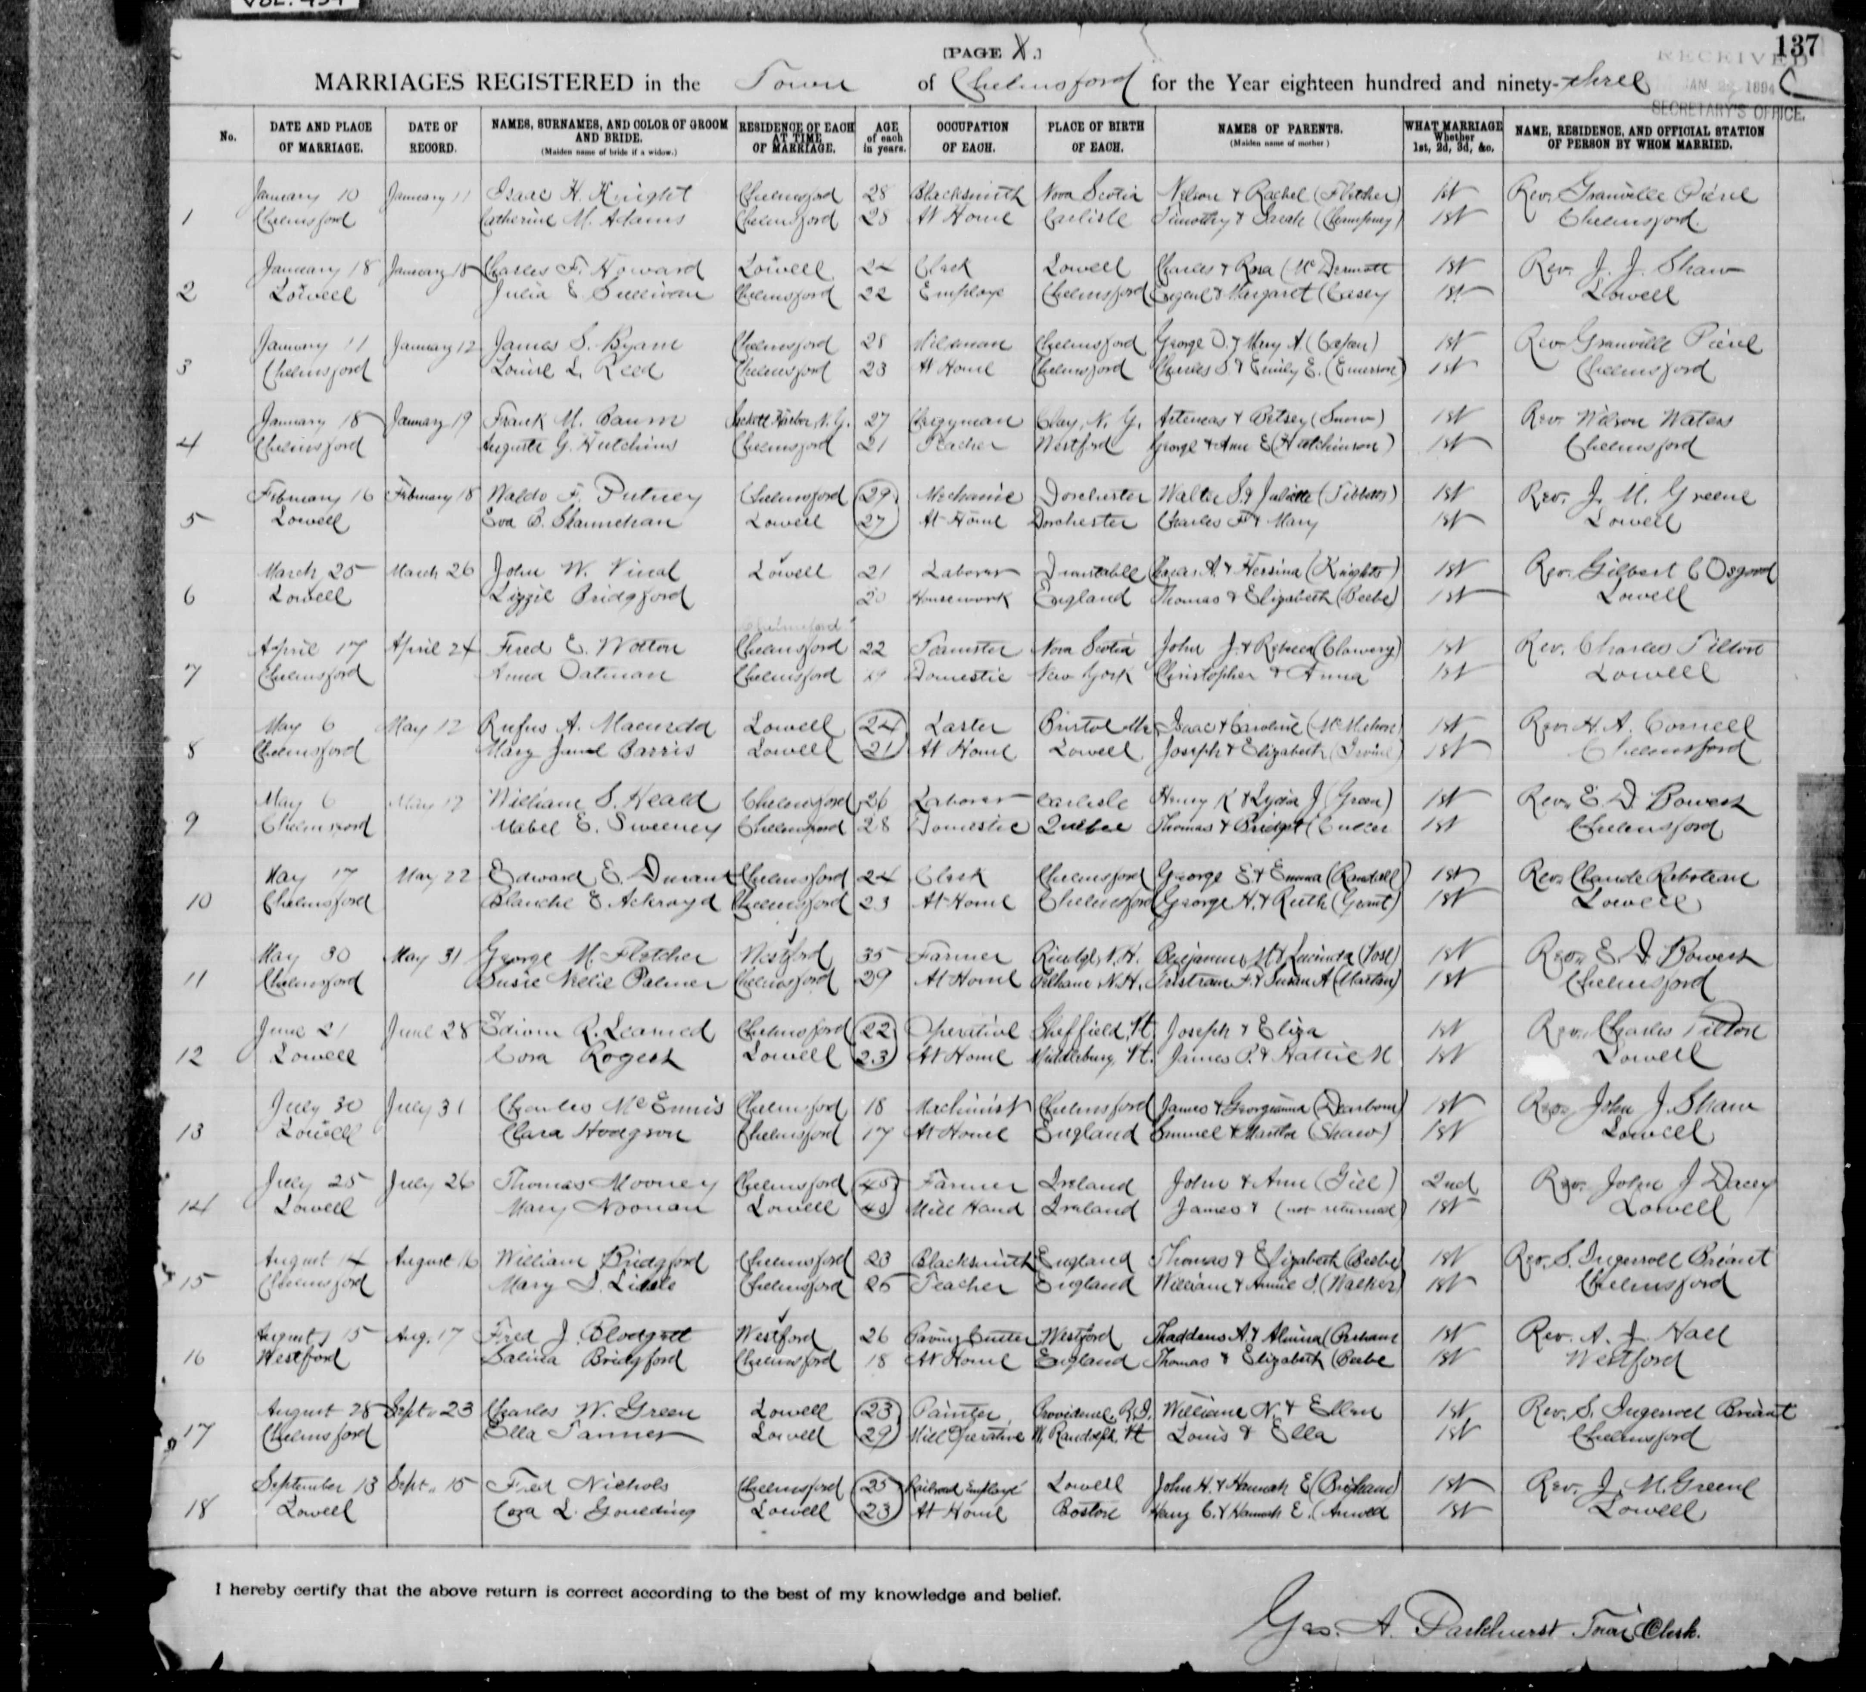 VOL. 434
[PAGE X.]
137
RECEIVED
JAN 1894
SECRETARY'S OFFICE.
MARRIAGES REGISTERED in the Town of Chelmsford for the Year eighteen hundred and ninety-three C
No. DATE AND PLACE OF MARRIAGE. DATE OF RECORD. NAMES, SURNAMES, AND COLOR OF GROOM AND BRIDE. (Maiden name of bride if a widow.) RESIDENCE OF EACH AT TIME OF MARRIAGE. AGE of each in years. OCCUPATION OF EACH. PLACE OF BIRTH OF EACH. NAMES OF PARENTS. (Maiden name of mother) WHAT MARRIAGE Whether 1st, 2d, 3d, &c. NAME, RESIDENCE, AND OFFICIAL STATION OF PERSON BY WHOM MARRIED.
January 10 January 11 Isaac H. Knight Chelmsford 28 Blacksmith Nova Scotia Nelson & Rachel (Fletcher) 1st Rev. Granville Pierce
1 Chelmsford Catherine M. Adams Chelmsford 28 At Home Carlisle Timothy & Sarah 1st Chelmsford.
January 18 January 18 Charles F. Howard Lowell 24 Clerk Lowell Charles & Rosa (McDermott 1st Rev. J. J. Shaw
2 Lowell Julia E. Sullivan Chelmsford 22 Employe Chelmsford Eugene & Margaret (Casey 1st Lowell
January 11 January 12 James S. Byam Chelmsford 28 Milkman Chelmsford George O. & Mary A 1st Rev. Granville Pierce
3 Chelmsford Louise L. Reed Chelmsford 23 At Home Chelmsford Charles S & Emily E. (Emerson) 1st Chelmsford
January 18 January 19 Frank M. Baum Sackett Harbor, N. Y. 27 Clergyman Clay, N. Y. Artemas & Betsey (Snow) 1st Rev. Wilson Waters
4 Chelmsford Augusta G. Hutchins Chelmsford 21 Teacher Westford George & Ann E (Hutchinson) 1st Chelmsford
February 16 February 18 Waldo F. Putney Chelmsford 29 Mechanic Dorchester Walter S. & Juliette (Tibbetts) 1st Rev. J. M. Greene
5 Lowell Eva B. Shannehan Lowell 27 At Home Dorchester Charles F. & Mary 1st Lowell
March 25 March 26 John W. Vinal Lowell 21 Laborer Dunstable A. & (Knights) 1st Rev. Gilbert C Osgood
6 Lowell Lizzie Bridgford 20 Housework England Thomas & Elizabeth (Beebe) 1st Lowell
Chelmsford
April 17 April 24 Fred E. Wotton Chelmsford 22 Teamster Nova Scotia John J. & Rebecca 1st Rev. Charles Tilton
7 Chelmsford Anna Oatman Chelmsford 19 Domestic New York Christopher & Anna 1st Lowell
May 6 May 12 Rufus A. Lowell 24 Laster Bristol Me Isaac & Caroline (McMahon) 1st Rev. H. A. Cornell
8 Chelmsford Mary Jane Barris Lowell 21 At Home Lowell Joseph & Elizabeth (Irvine) 1st Chelmsford
May 6 May 12 William S. Heald Chelmsford 26 Laborer Carlisle Henry K & Lydia J (Green) 1st Rev. E. D. Bowers
9 Chelmsford Mabel E. Sweeney Chelmsford 28 Domestic Quebec Thomas & Bridget 1st Chelmsford
May 17 May 22 Edward E. Durant Chelmsford 24 Clerk Chelmsford George E & Emma (Randall) 1st Rev. Claude Raboteau
10 Chelmsford Blanche E Ackroyd Chelmsford 23 At Home Chelmsford George H. & Ruth (Grant) 1st Lowell
May 30 May 31 George M. Fletcher Westford 35 Farmer Rindge, N.H. Benjamin M & Lucinda (Vose) 1st Rev. E. D. Bowers
11 Chelmsford Susie Nellie Palmer Chelmsford 29 At Home Pelham, N.H. Tristram F. & Susan A 1st Chelmsford
June 21 June 28 Edwin R. Learned Chelmsford 22 Operative Sheffield, Vt. Joseph & Eliza 1st Rev. Charles Tilton
12 Lowell Cora Rogers Lowell 23 At Home Middlebury, Vt. James P. & Hattie M 1st Lowell
July 30 July 31 Charles McEnnis Chelmsford 18 Machinist Chelmsford James & Georgianna (Dearborn) 1st Rev. John J. Shaw
13 Lowell Clara Hodgson Chelmsford 17 At Home England & Martha (Shaw) 1st Lowell
July 25 July 26 Thomas Mooney Chelmsford 45 Farmer Ireland John & Ann (Gill) 2nd Rev. John J Dacey
14 Lowell Mary Noonan Lowell 45 Mill Hand Ireland James & (not returned) 1st Lowell
August 14 August 16 William Bridgford Chelmsford 23 Blacksmith England Thomas & Elizabeth (Beebe) 1st Rev. S. Ingersoll Briant
15 Chelmsford Mary I. Chelmsford 25 Teacher England William & Annie S. (Walker) 1st Chelmsford
August 15 Aug. 17 Fred J. Blodgett Westford 26 Paving Cutter Westford Thaddeus A. & Almina 1st Rev. A. J. Hall
16 Westford Salina Bridgford Chelmsford 18 At Home England Thomas & Elizabeth (Beebe 1st Westford
August 28 Sept. 23 Charles W. Green Lowell 23 Painter Providence, R.I. William N. & Ellen 1st Rev. S. Ingersoll Briant
17 Chelmsford Ella Tanner Lowell 29 Mill Operative W. Randolph, Vt Louis & Ella 1st Chelmsford
September 13 Sept. 15 Fred Nichols Chelmsford 25 Railroad Employe Lowell John H. & Hannah E (Brigham) 1st Rev. J. M. Greene
18 Lowell Cora L. Goulding Lowell 23 At Home Boston Harry C. & Hannah E. 1st Lowell
I hereby certify that the above return is correct according to the best of my knowledge and belief.
Geo. A. Parkhurst Town Clerk.